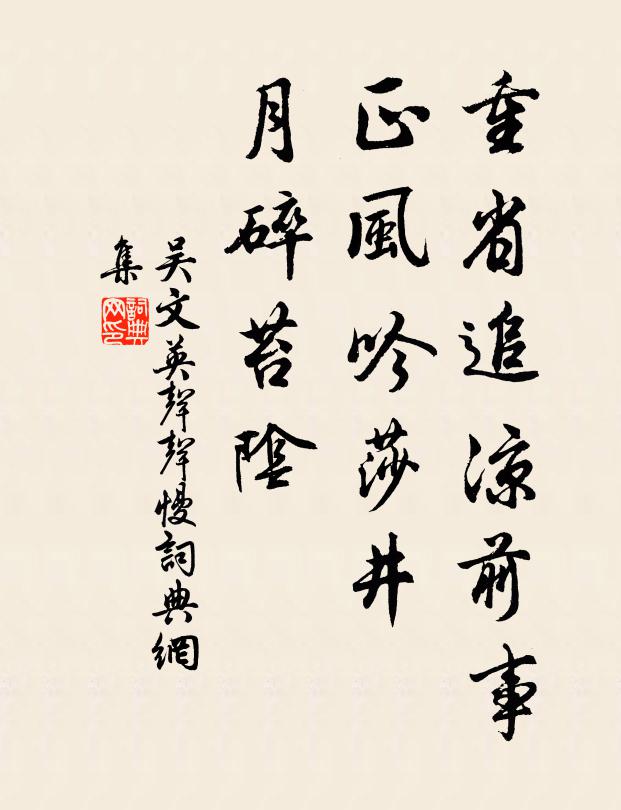 重省追凉前事
正風吟莎井
月碎苔陰
吳文英聲聲慢詞典網
集
詞典
网印